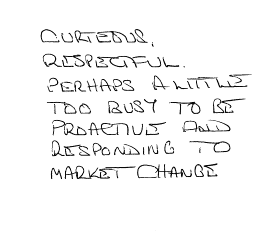 CURTEOUS,
RESPECTFUL.
PERHAPS A LITTLE
TOO BUSY TO BE
PROACTIVE AND
RESPONDING TO
MARKET CHANGE